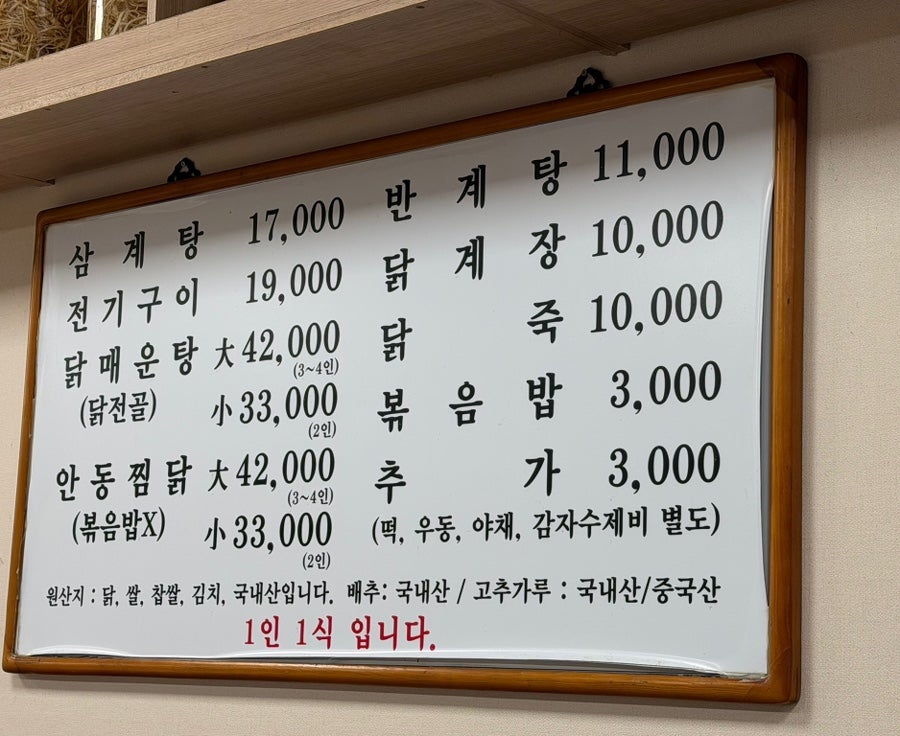 삼계탕 17,000
전기구이 19,000
닭매운탕 大 42,000
(3~4인)
(닭전골) 小 33,000
(2인)
안동찜닭 大 42,000
(3~4인)
(볶음밥X) 小 33,000
(2인)
반계탕 11,000
닭계장 10,000
닭죽 10,000
볶음밥 3,000
추가 3,000
(떡, 우동, 야채, 감자수제비 별도)
원산지 : 닭, 쌀, 찹쌀, 김치, 국내산입니다. 배추: 국내산 / 고추가루 : 국내산/중국산
1인 1식 입니다.